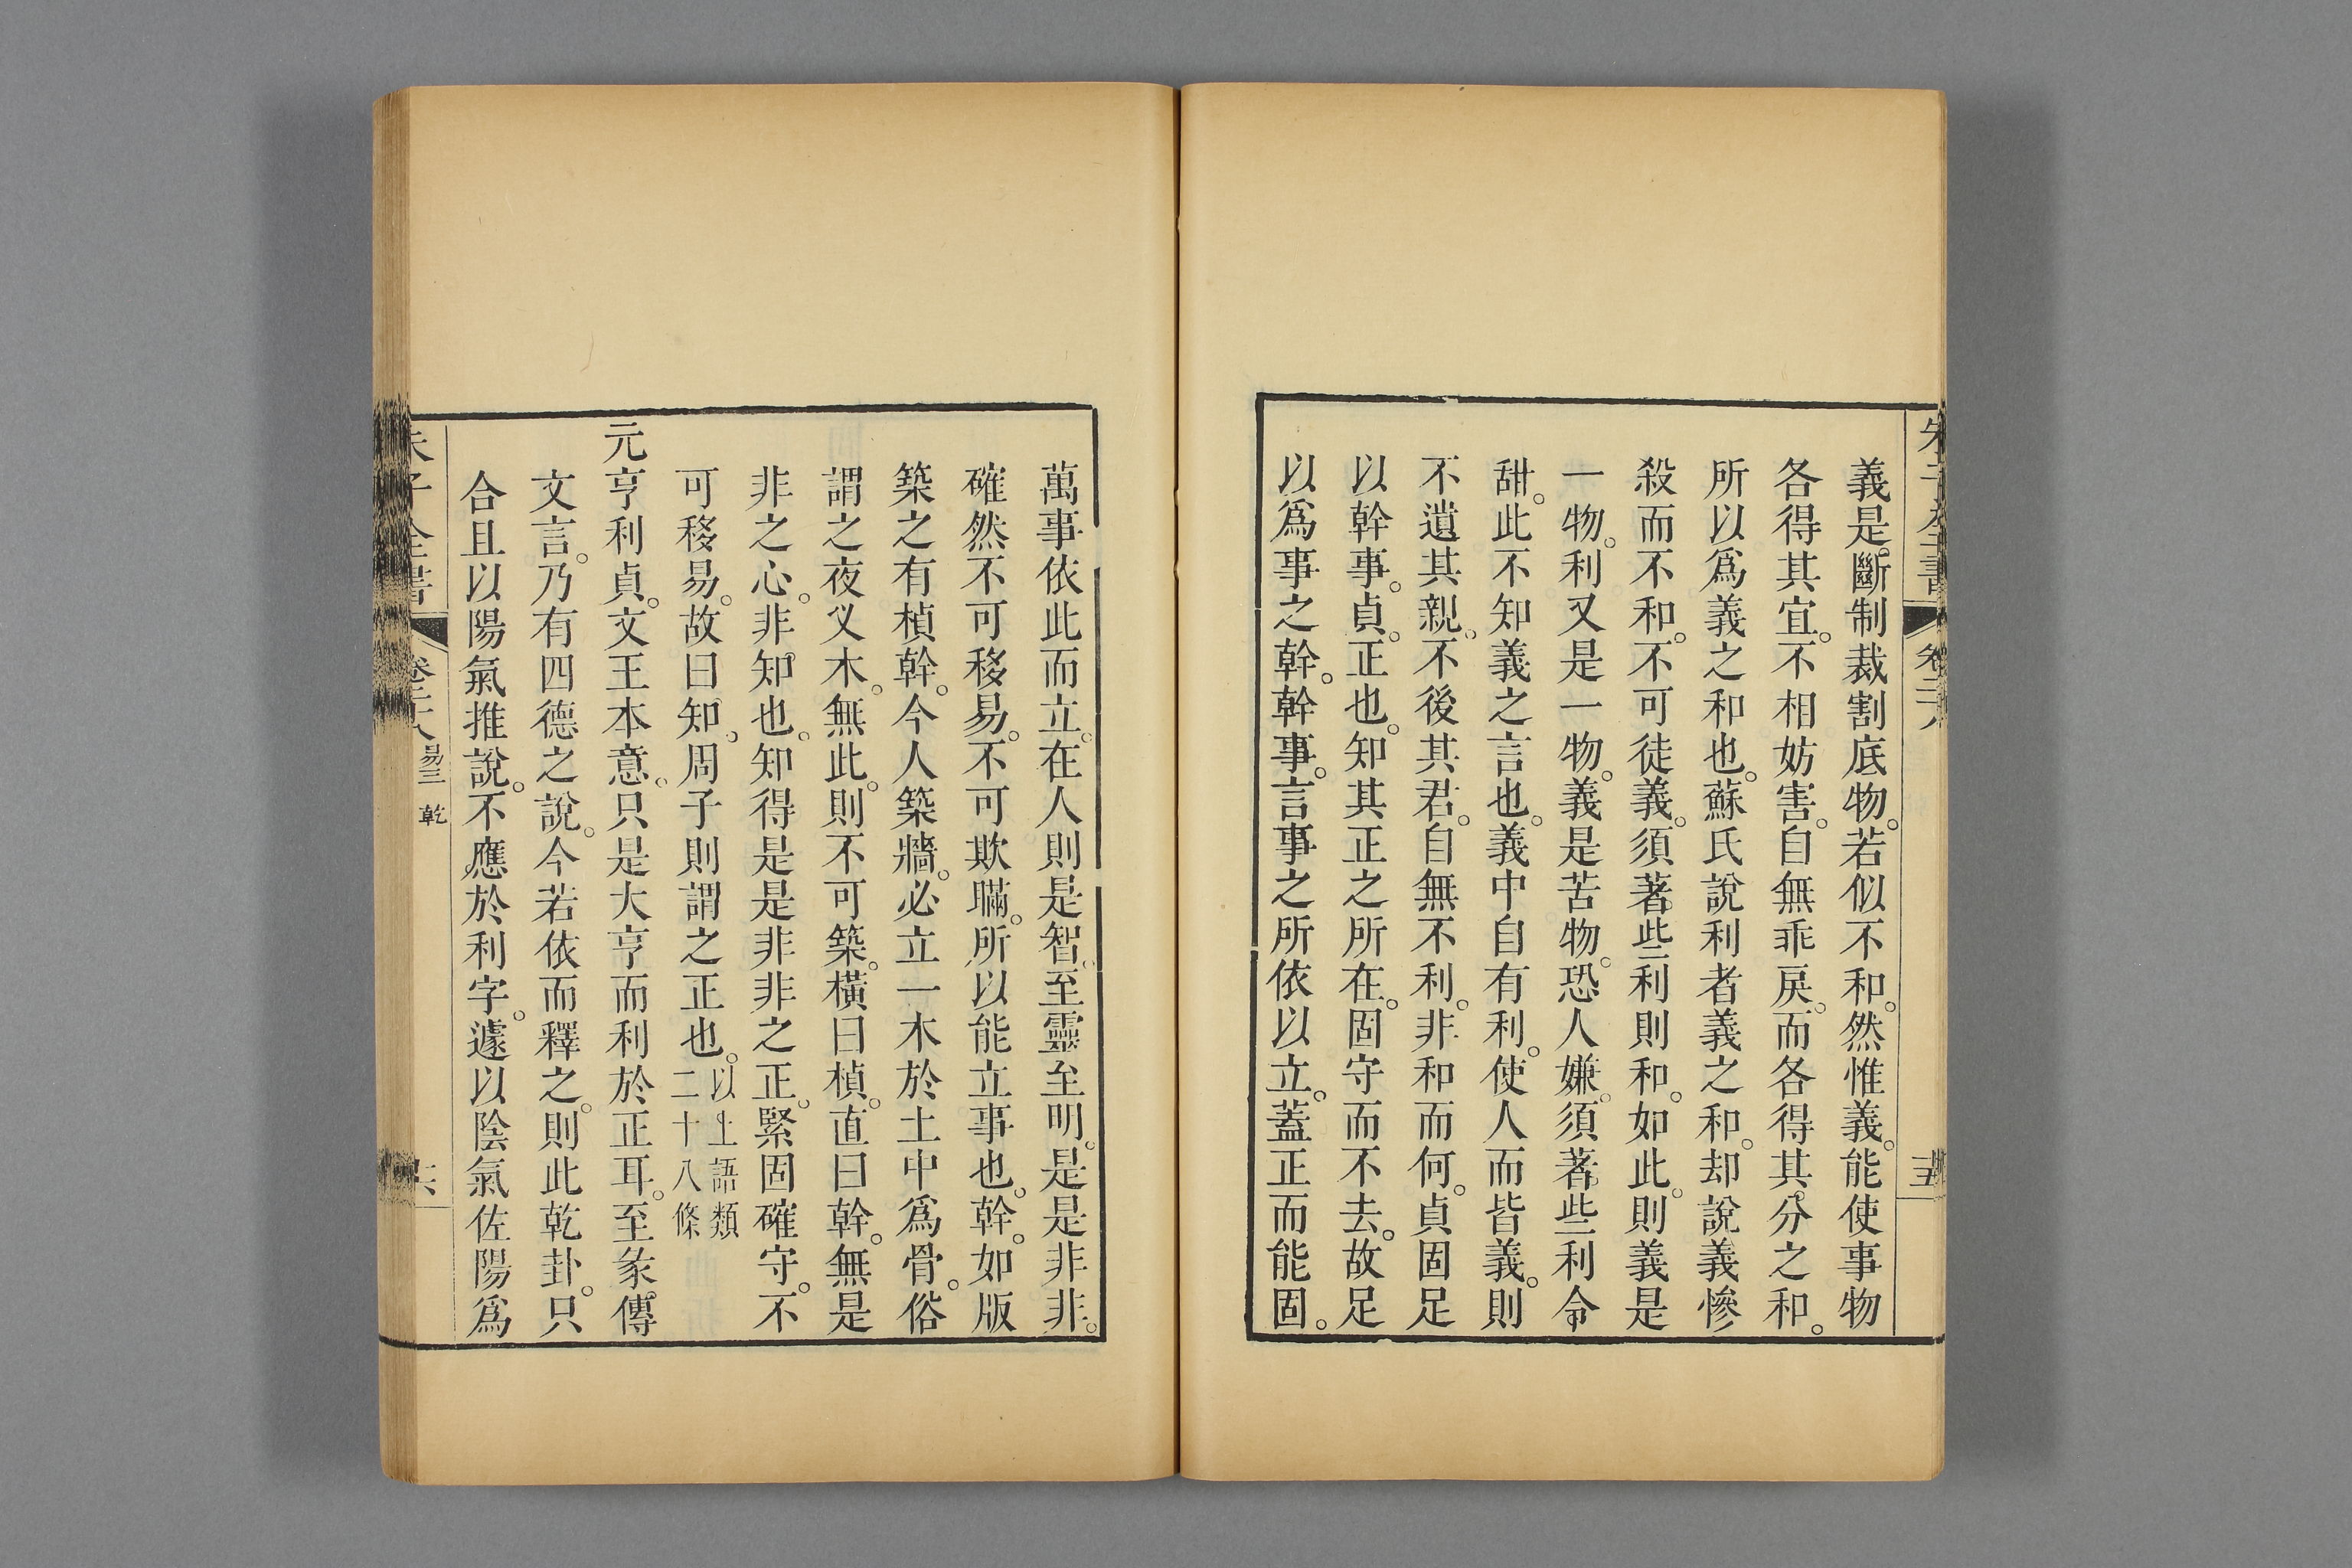 義是。斷制裁割底物。若似不和。然惟義。能使事物
各得其宜。不相妨害。自無乖戾。而各得其分之和。
所以爲義之和也。蘇氏說利者義之和。却說義慘
殺而不和。不可徒義。須著些利則和。如此。則義是
一物。利又是一物。義是苦物。恐人嫌。須著些利令
甜。此不知義之言也。義中自有利。使人而皆義。則
不遺其親。不後其君。自無不利。非和而何。貞固足
以幹事。貞。正也。知其正之所在。固守而不去。故足
以爲事之幹。幹事。言事之所依以立。蓋正而能固。
萬事依此而立。在人則是智。至靈至明。是是非非。
確然不可移易。不可欺瞞。所以能立事也。幹。如版
築之有楨幹。今人築牆。必立一木於土中爲骨。俗
謂之夜叉木。無此。則不可築。橫曰楨。直曰幹。無是
非之心。非知也。知得是是非非之正。緊固確守。不
可移易。故曰知。周子則謂之正也。以上語類二十八條
元亨利貞。文王本意。只是大亨而利於正耳。至彖傳
文言。乃有四德之說。今若依而釋之。則此乾卦。只
合且以陽氣推說。不應於利字。遽以陰氣佐陽爲
朱子全書
易三 乾